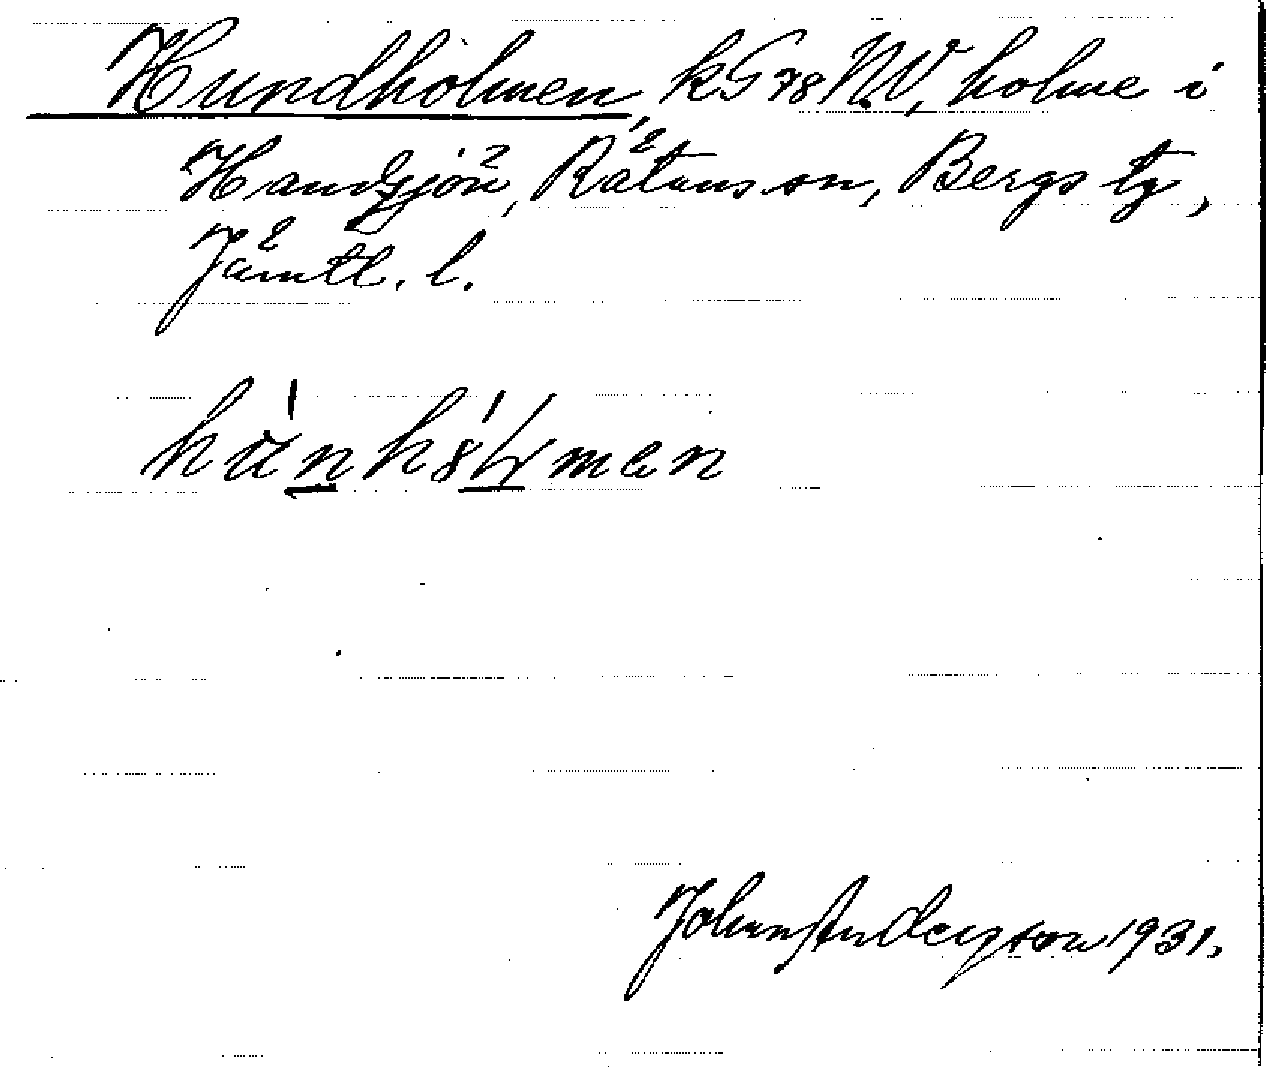 Hundholmen, kG 78 N.V., holme i
Handsjön, Rätans sn, Bergs tg,
Jämtl. l.
Johan Anderson 1931.